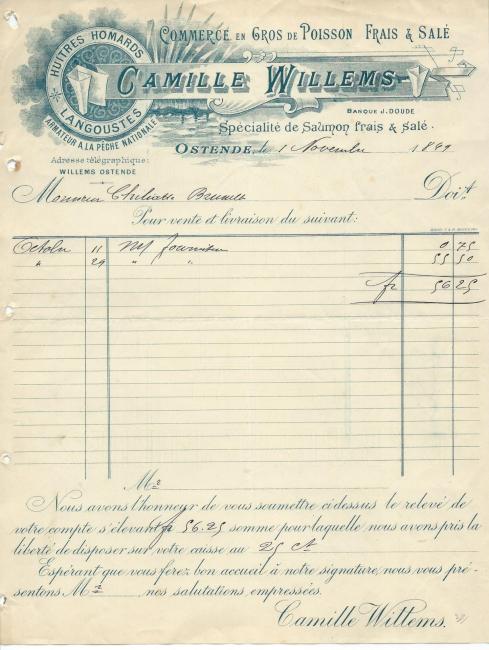 Commerce en Gros de Poisson Frais & Salé
HUITRES HOMARDS
LANGOUSTES
Camille Willems
ARMATEUR A.LA PÊCHE NATIONALE
BANQUE J. DOUDE
Spécialité de Saumon frais & salé.
Adresse télégraphique:
WILLEMS OSTENDE
OSTENDE, le 1 Novembre 1899
Monsieur Bruxelles Doit
Pour vente et livraison du suivant:
Octobre 11 0 75
" 29 " " 55 50
fr 56 25
M
Nous avons l'honneur de vous soumettre ci dessus le relevé de
votre compte s'élevant fr 56.25 somme pour laquelle nous avons pris la
liberté de disposer sur votre caisse au 25 ct
Espérant que vous ferez bon accueil à notre signature, nous vous pré-
sentons, M nos salutations empressées.
Camille Willems.